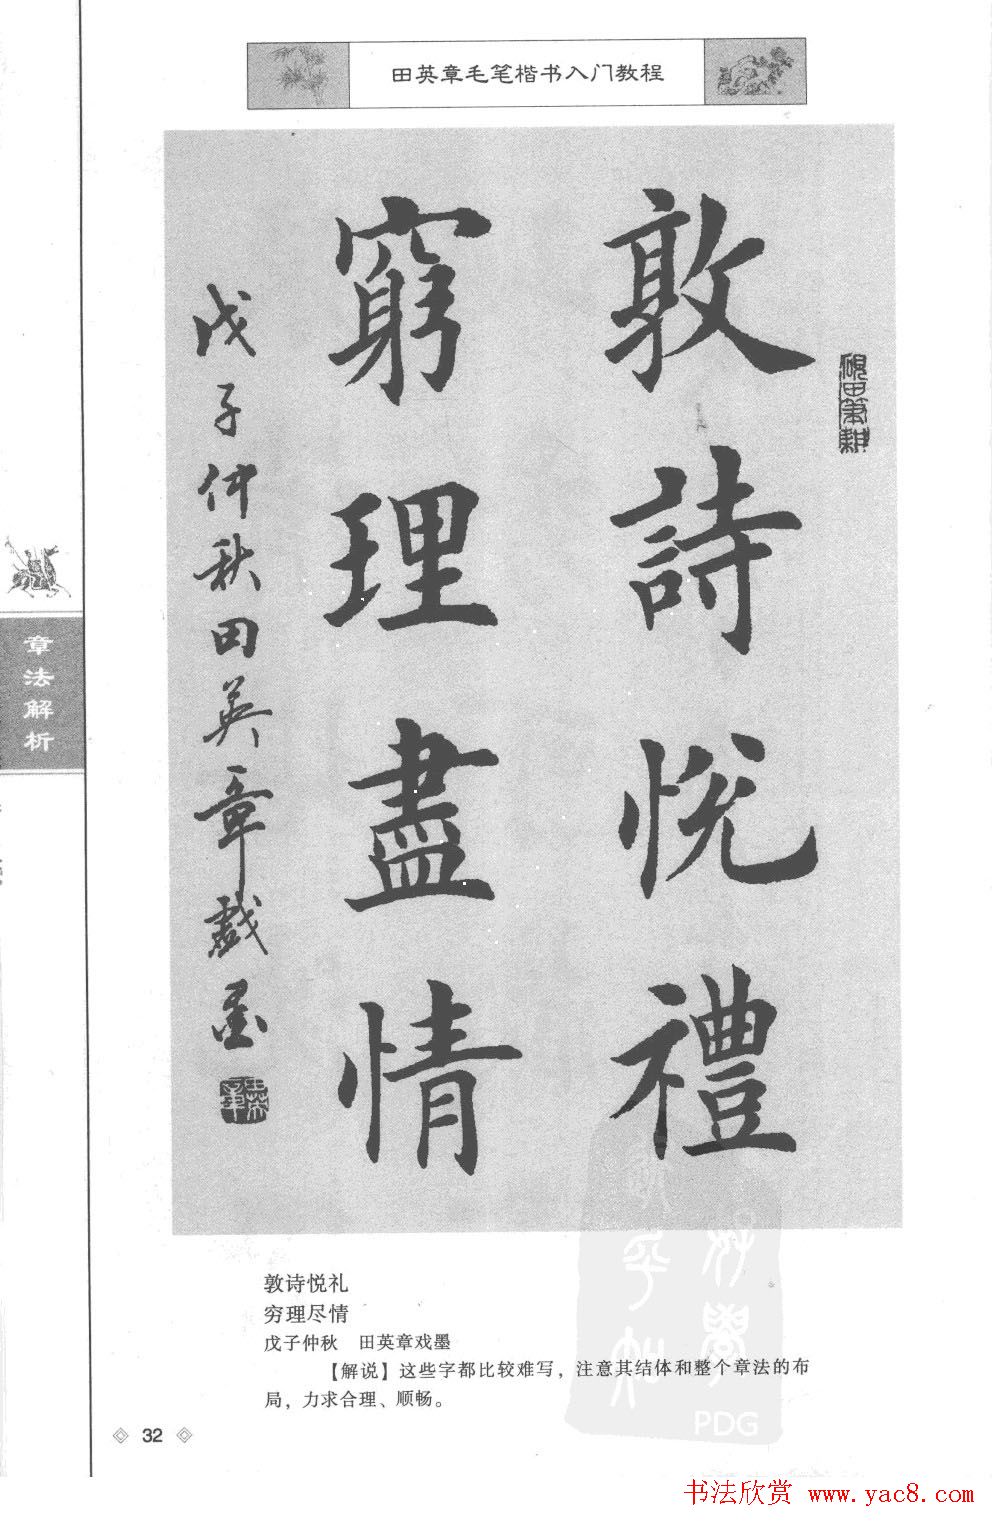 田英章毛笔楷书入门教程
敦詩悦禮
窮理盡情
戊子仲秋田英章戲墨
砚田笔耕
章法解析
敦诗悦礼
穷理尽情
戊子仲秋　田英章戏墨
【解说】这些字都比较难写，注意其结体和整个章法的布
局，力求合理、顺畅。
32
PDG
书法欣赏 www.yac8.com